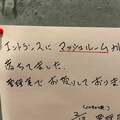 エントランスに マッシュルームが
落ちてました。
管理室で お預りして おります